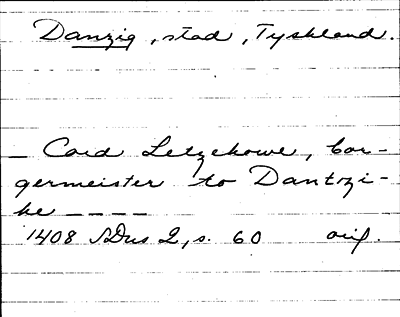 Danzig, stad, Tyskland.
_ Cord Letzekowe, bor-
germeister to Dantzi-
ke _ _ _ _
1408 SDns 2, s. 60 orig.